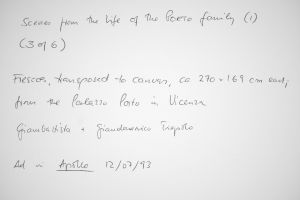 Scenes from the life of the Porto family (1)
(3 of 6)
Frescos, transposed to canvas, ca 270 x 169 cm each,
from the Palazzo Porto in Vicenza
Giambattista + Giandomenico Tiepolo
Ad in Apollo 12/07/93